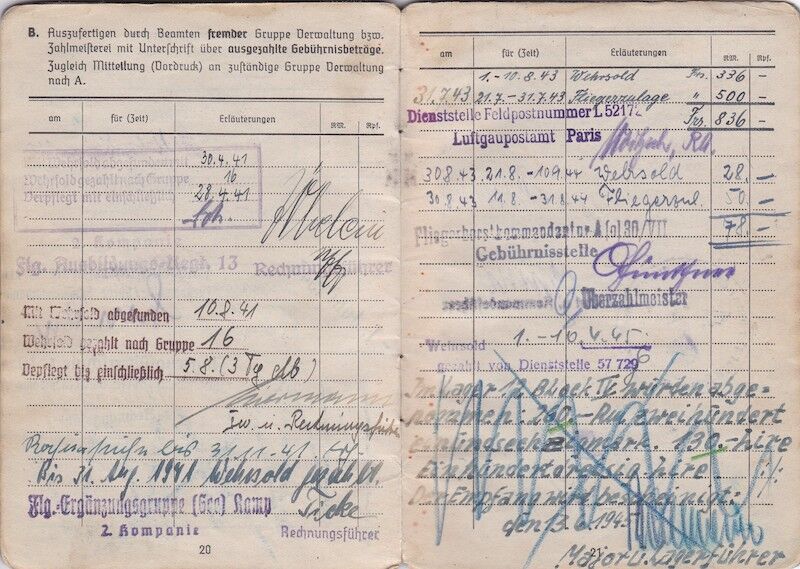 B. Auszufertigen durch Beamten fremder Gruppe Verwaltung bzw.
Zahlmeisterei mit Unterschrift über ausgezahlte Gebührnisbeträge.
Zugleich Mitteilung (Vordruck) an zuständige Gruppe Verwaltung
nach A.
am für (Zeit) Erläuterungen RM. Rpf.
30.4.41
Wehrsold gezahlt nach Gruppe 16
Verpflegt mit einschließlich 28.4.41
2. Kompanie
Flg. Ausbildungs-Regt. 13 Rechnungsführer
Mit Wehrsold abgefunden 10.8.41
Wehrsold gezahlt nach Gruppe 16
Verpflegt bis einschließlich 5.8. (3 Tg. slb)
bis 31.11.41
Bis 31. Aug. 1941 Wehrsold gezahlt.
Flg.-Ergänzungsgruppe (See) Kamp
2. Kompanie Rechnungsführer
20
am für (Zeit) Erläuterungen RM. Rpf.
1.-10.8.43 Wehrsold Frs. 336 –
31.7.43 21.7.-31.7.43 Fliegerzulage " 500 –
Dienststelle Feldpostnummer L 52172 Frs. 836 –
Luftgaupostamt Paris
30.8.43 21.8.-10.9.44 Wehrsold 28.–
30.8.43 11.8.-31.8.44 Fliegerzul. 50.–
78.–
Fliegerhorstkommandantur A (o) 30/VII
Gebührnisstelle
Oberzahlmeister
Wehrsold 1.-10.4.45.
gezahlt von Dienststelle 57 729
Im Lager 12 Abgel. IV wurden abge-
nommen: 260,- RM zweihundert
130.- Lire
Einhundertdreissig Lire
Der Empfang wird bescheinigt:
den 13.6.1945
21
Major u. Lagerführer